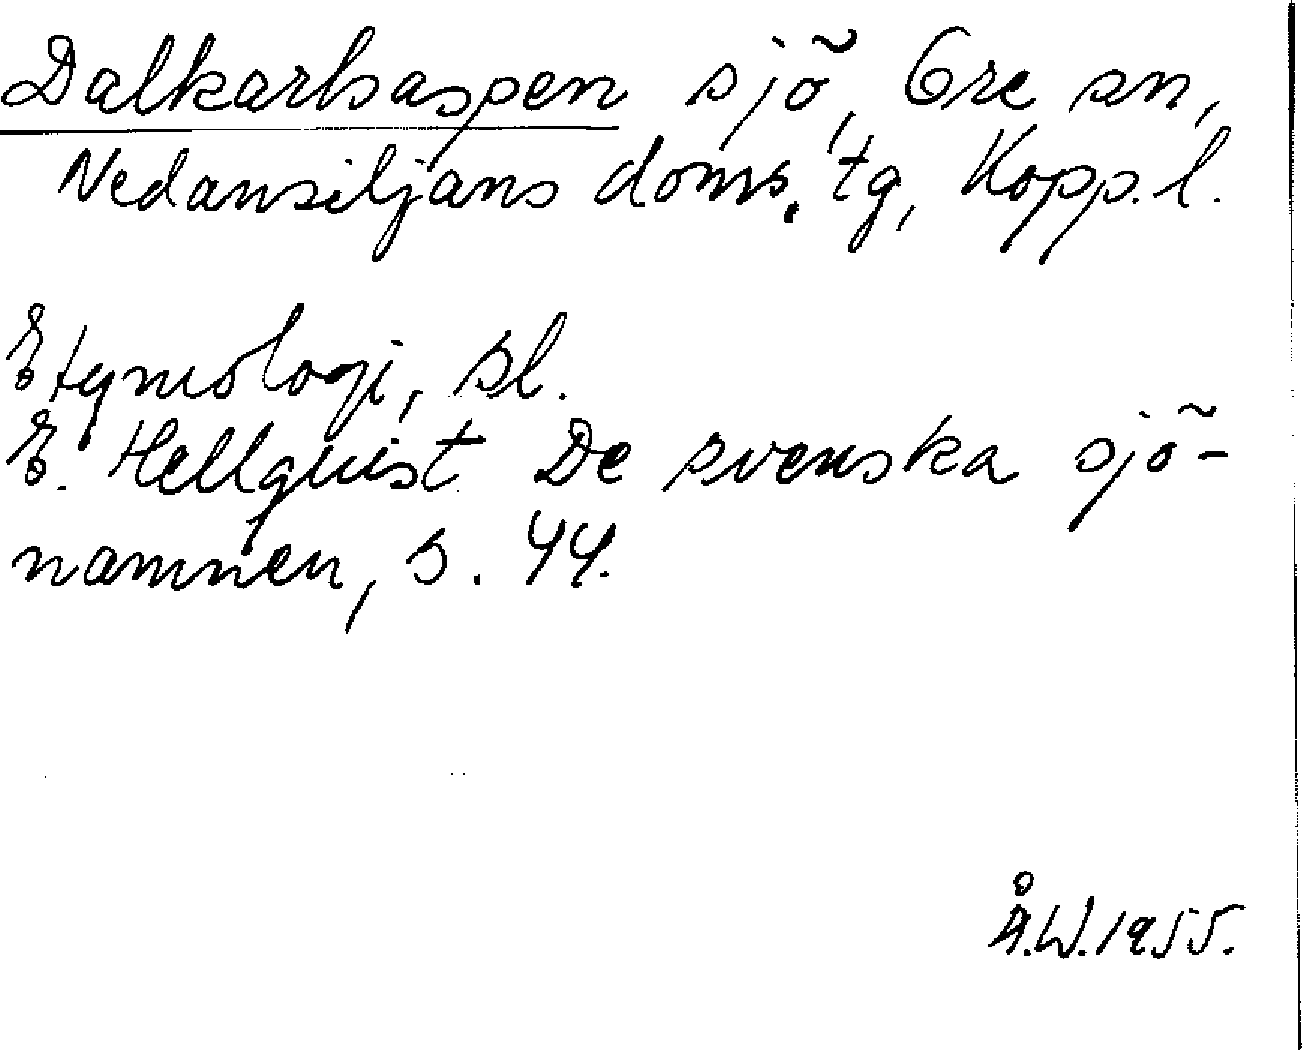 Dalkarlsaspen sjö, Ore sn,
Nedansiljans doms. tg, Kopp. l.
Etymologi, sl.
E. Hellquist De svenska sjö-
namnen, s. 44.
Å.W. 1955.